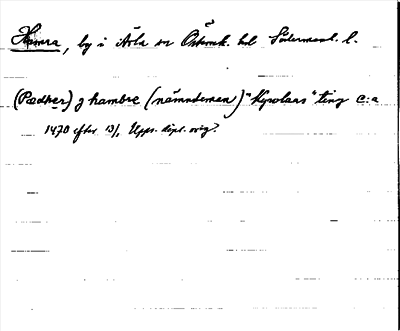 Hamra, by i Ärla sn Österrek. hd Södermanl. l.
(Pædher) j hambre (nämndeman) "kyrolaax" ting c:a
1470 efter 13/1 Upps. dipl. orig?